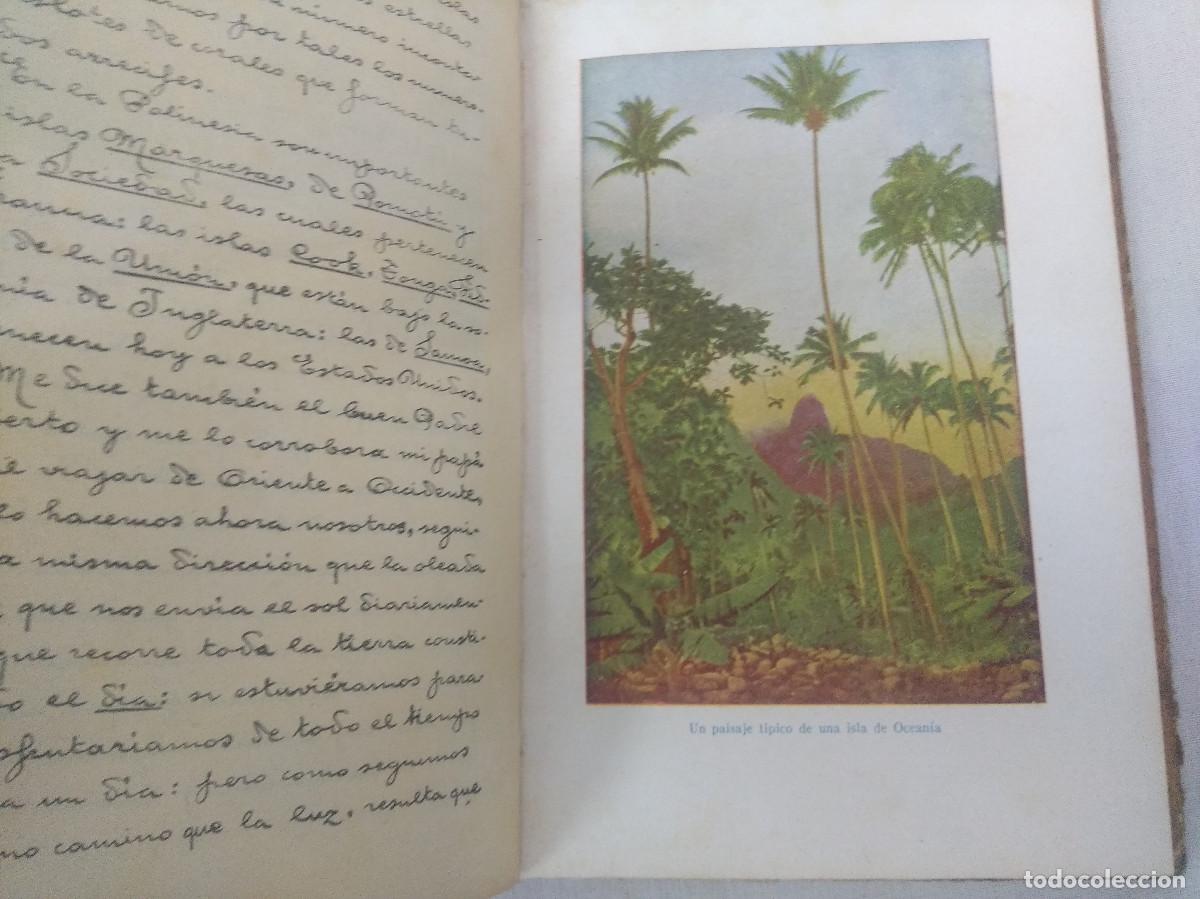 islas
estrellas
amos por tales los numero-
islotes de corales que forman
dos arrecifes.
En la Polinesia son importantes
islas Marquesas, de Pomotú y
Sociedad, las cuales pertenecen
las islas Cook, Tonga,
de la Unión, que están bajo la so-
nía de Inglaterra: las de Samoa,
necen hoy a los Estados Unidos.
Me dice también el buen Padre
erto y me lo corrobora mi papá
viajar de Oriente a Occidente,
lo hacemos ahora nosotros, segui-
a misma dirección que la oleada
que nos envía el sol diariamen-
que recorre toda la tierra consti-
o el día: si estuviéramos para-
sfrutaríamos de todo el tiempo
a un día: pero como seguimos
mo camino que la luz, resulta que
Un paisaje típico de una isla de Oceanía
todocoleccion